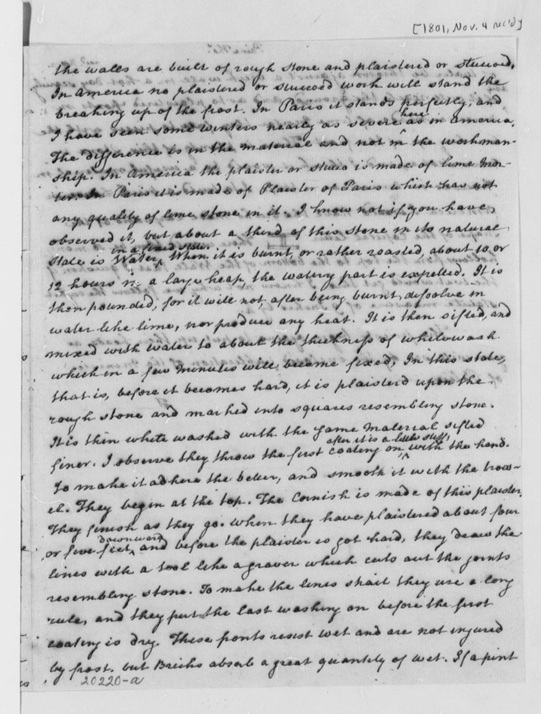 [1801, Nov. 4 rec'd]
the walls are built of rough stone and plaistered or stucood.
In America no plaistered or stucood work will stand the
breaking up of the frost. In Paris it stands perfectly, and
I have seen some winters nearly as severe here as in america.
The difference is in the material and not in the workman-
ship. In America the plaister or stuco is made of lime mor-
ter. In Paris it is made of Plaister of Paris which has not
any quality of lime stone in it. I know not if you have
observed it, but about a third of this stone in its natural
state is Water, in a fixed state. When it is burnt, or rather roasted, about 10 or
12 hours in a large heap, the watery part is expelled. It is
then pounded, for it will not, after being burnt, dissolve in
water like lime, nor produce any heat. It is then sifted, and
mixed with water to about the thickness of whitewash
which in a few minutes will become fixed, In this state,
that is, before it becomes hard, it is plaistered upon the
rough stone and marked into squares resembling stone.
It is then white washed with the same material sifted
finer. I observe they throw the first coating on, after it is a little stiff, with the hand.
To make it adhere the better, and smooth it with the trow-
el. They begin at the top. The Cornish is made of this plaister.
They finish as they go. when they have plaistered about four
or five feet downward, and before the plaister is got hard, they draw the
lines with a tool like a graver which cuts out the joints
resembling stone. To make the lines strait they use a long
rule, and they put the last washing on before the first
coating is dry. These fronts resist wet and are not injured
by frost. but Bricks absorb a great quantity of wet. If a pint
20220-a